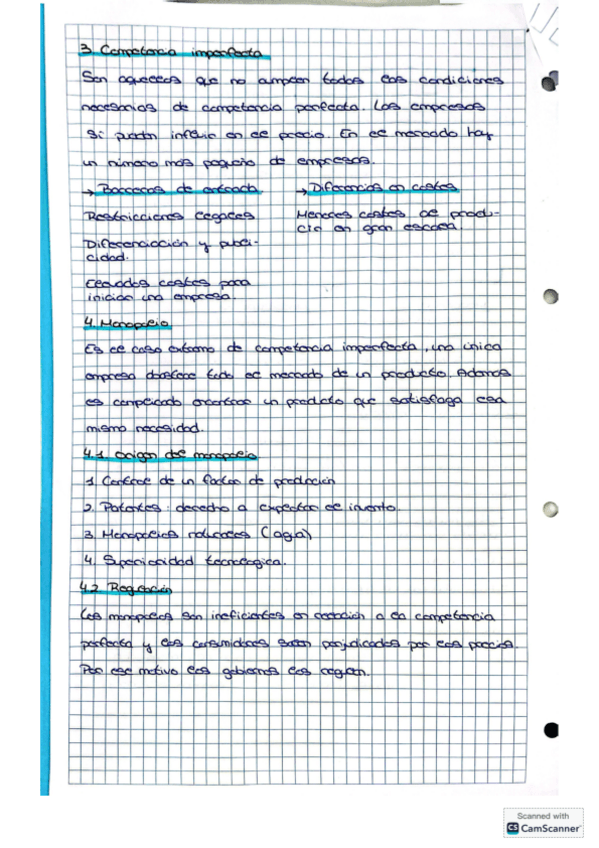 3. Competencia imperfecta
Son aquellos que no cumplen todas las condiciones
necesarias de competencia perfecta. Las empresas
sí pueden influir en el precio. En el mercado hay
un número más pequeño de empresas.
→ Barreras de entrada
Restricciones legales
Diferenciación y publi-
cidad.
Elevados costes para
iniciar una empresa.
→ Diferencias en costes
Menores costes de produ-
cir en gran escala.
4. Monopolio
Es el caso extremo de competencia imperfecta, una única
empresa domina todo el mercado de un producto. Además
es complicado encontrar un producto que satisfaga esa
misma necesidad.
4.1. Origen del monopolio
1. Control de un factor de producción
2. Patentes: derecho a explotar el invento.
3. Monopolios naturales (agua)
4. Superioridad tecnológica.
4.2. Regulación
Los monopolios son ineficientes en relación a la competencia
perfecta y los consumidores salen perjudicados por los precios.
Por ese motivo los gobiernos los regulan.
Scanned with
CS CamScanner